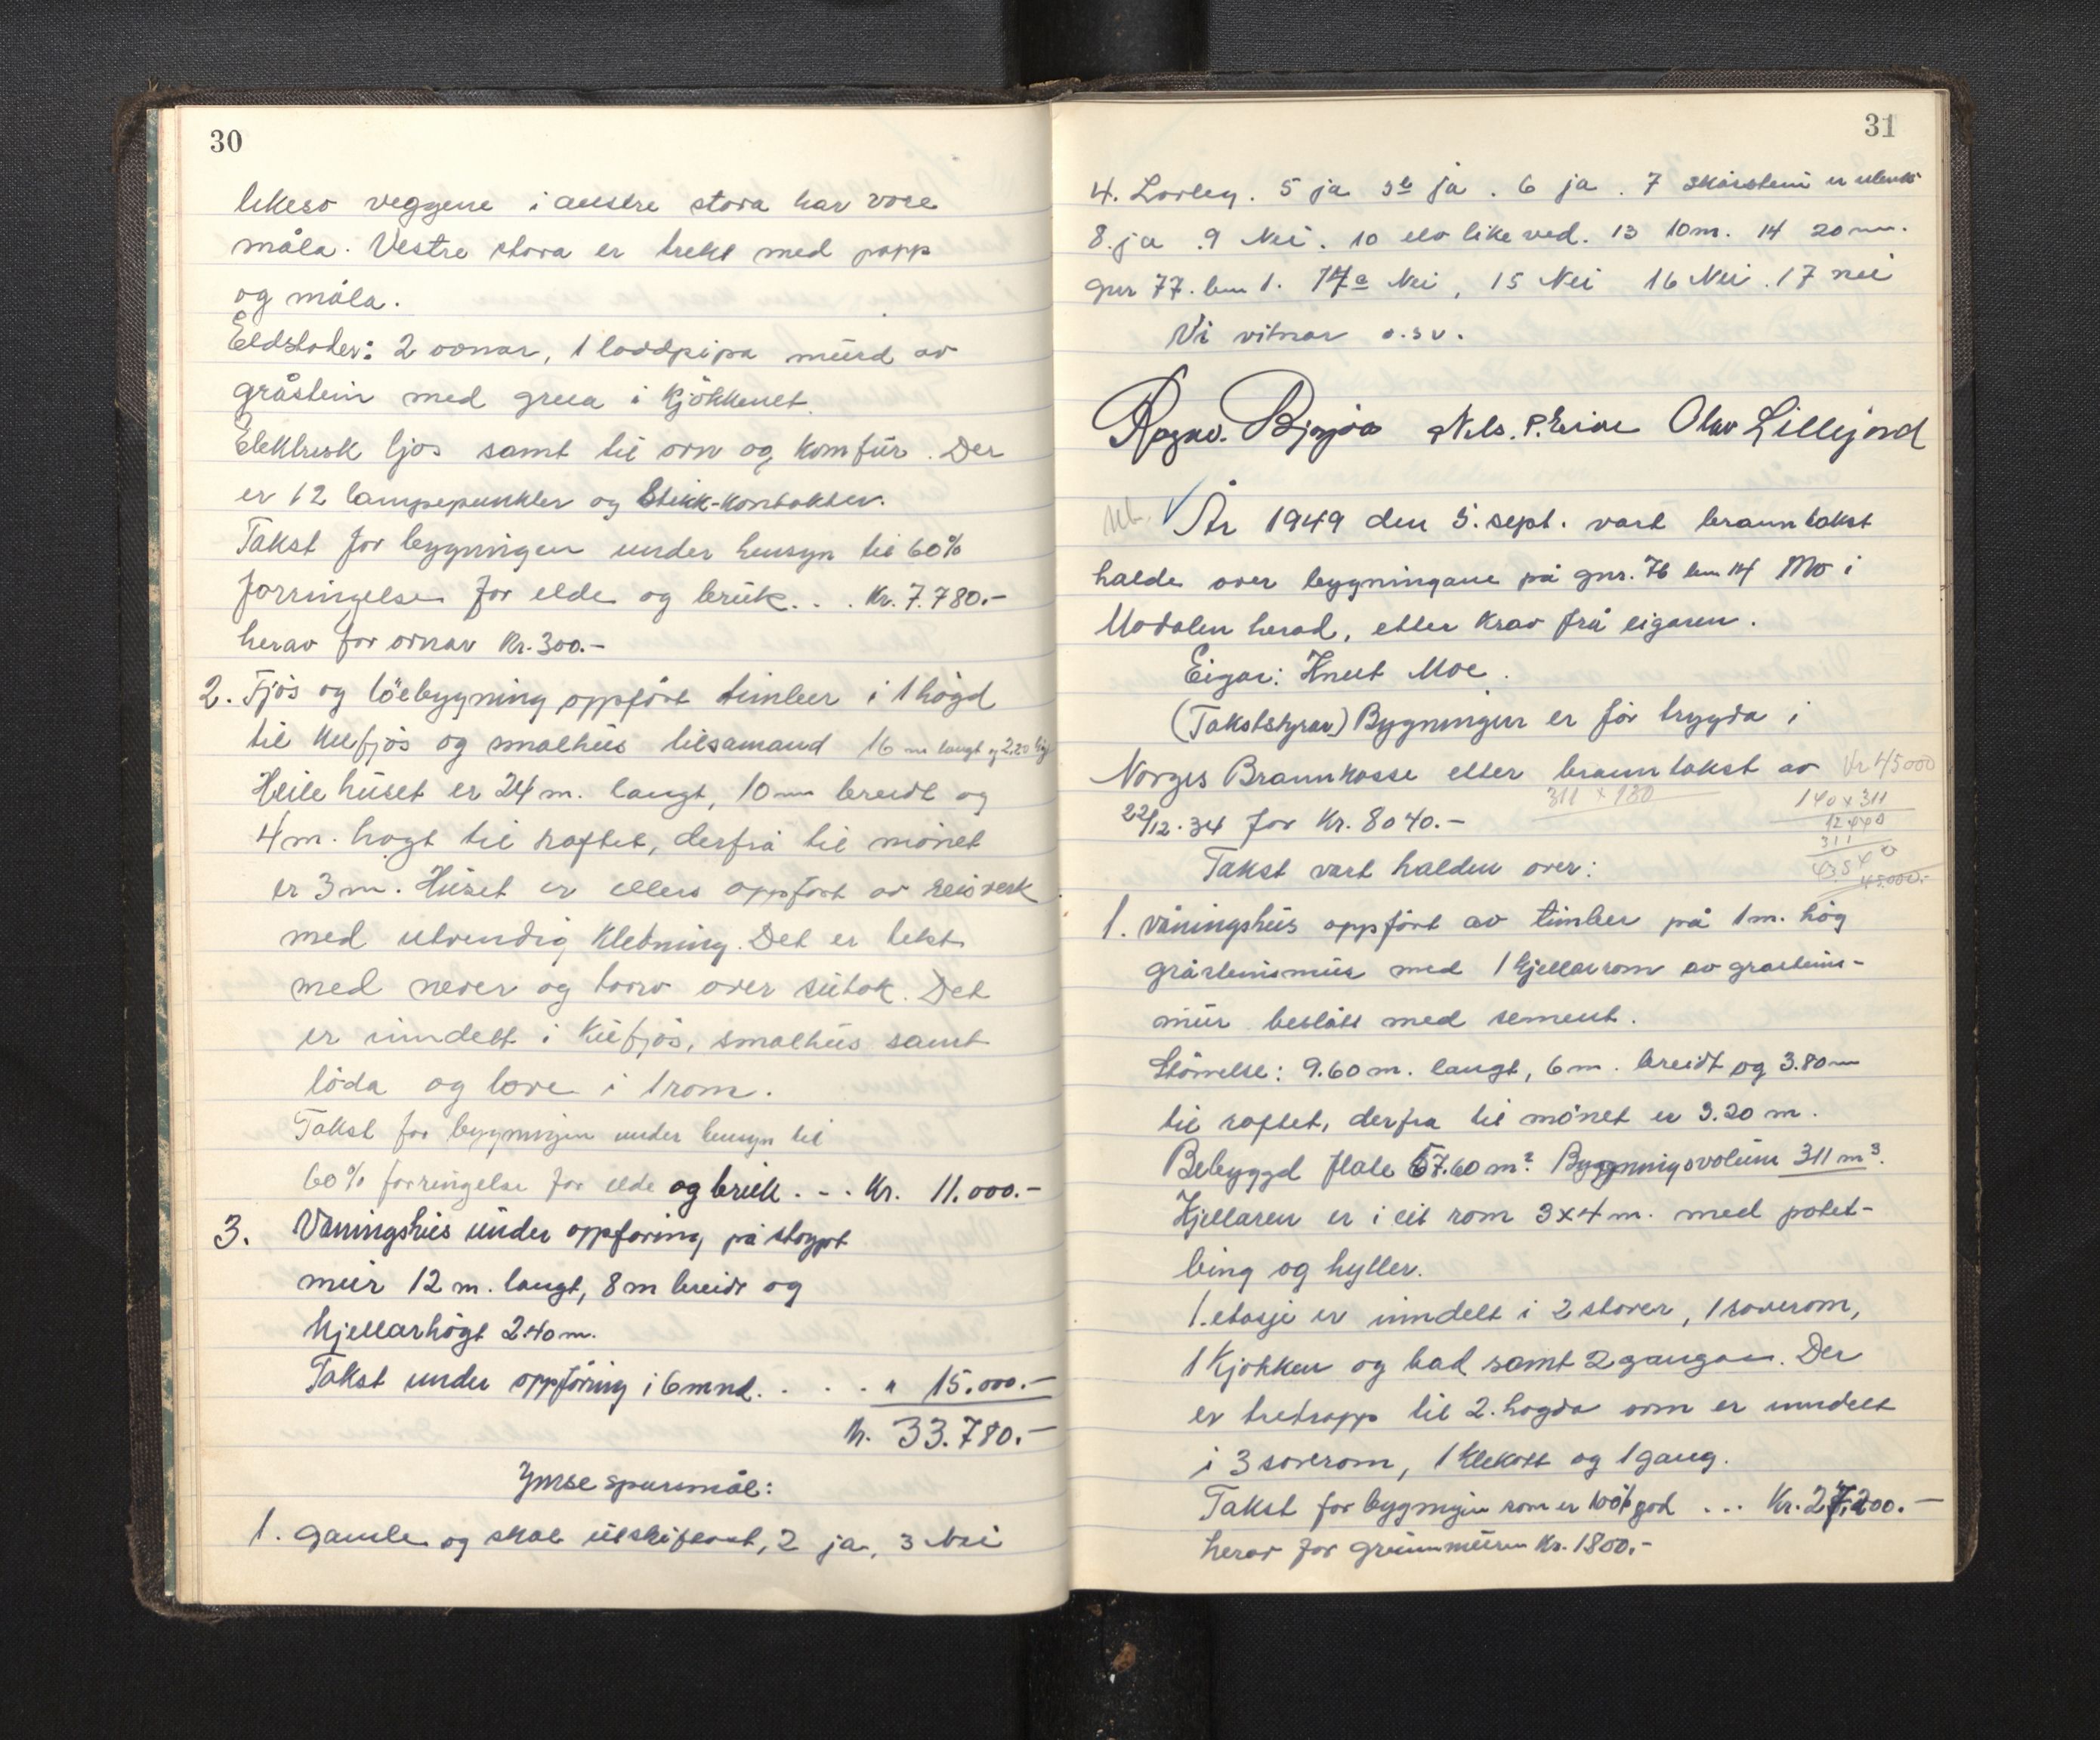 30
likeso veggene i austre stova har vore
måla. Vestre stova er trekt med papp
og måla.
Eldstader: 2 ovnar, 1 loddpipa mūrd av
gråstein med grua i kjökkenet.
Elektrisk ljos samt til ovn og komfūr. Der
er 12 lampepunkter og Stikk-kontakter.
Takst for bygningen under hensyn til 60%
forringelse for elde og brūk. . . Kr. 7.780.-
herav for ovnar Kr. 300.-
2. Fjøs og löebygning oppført timber i 1 högd
til kufjös og smalhūs tilsamand 16 m langt og 2,20 högt
Heile hūset er 24 m. langt, 10 m breidt og
4 m. høgt til raftet, derfrå til mönet
er 3 m. Hūset er ellers oppført av reisverk
med utvendig kledning. Det er tekt
med never og torv over sūtak. Det
er inndelt i kūfjös, smalhūs samt
löda og løve i 1 rom.
Takst for bygningen under hensyn til
60% forringelse for elde og brūk . - . Kr. 11.000.-
3. Våningshūs ūnder oppføring på støypt
mūr 12 m. langt, 8 m breidt og
kjellarhögt 2.40 m.
Takst under oppföring i 6 mnd. . . . " 15.000.-
Kr. 33.780.-
Ymse spursmål:
1. gamle og skal ūtskiftast, 2 ja, 3 Nei
31
4. Lovleg. 5 ja 5b ja. 6 ja. 7 skårstein er
8. ja. 9 Nei. 10 elv like ved. 13 10 m. 14 20 m.
gnr 77. bnr 1. 14a Nei, 15 Nei 16 Nei. 17 nei
Vi vitnar o.s.v.
Ragnv. Nils. P. Eide Olav Lillejord
År 1949 den 5. sept. vart branntakst
halde over bygningane på gnr. 76 bnr 14 Mo i
Modalen herad, etter krav frå eigaren.
Eigar: Knut Moe.
(Takststyrar) Bygningen er för trygda i
Norges Brannkasse etter branntakst av Kr 45000
22/12.34 for Kr. 8040.-
311 x 130
140 x 311
12440
311
43540
45.000.-
Takst vart halden over:
1. våningshūs oppfört av timber på 1 m. hög
gråsteinsmūr med 1 kjellarrom av gråsteins-
mūr beslått med sement.
Större­lse: 9.60 m. langt, 6 m. breidt og 3.80 m
til raftet, derfra til mönet er 3.20 m.
Bebyggd flate 57.60 m². Bygningsvolūm 311 m³.
Kjellaren er i eit rom 3x4 m. med potet-
bing og hyller.
1. etasje er inndelt i 2 stover, 1 soverom,
1 Kjøkken og bad samt 2 gangar. Der
er tretrapp til 2. høgda som er inndelt
i 3 soverom, 1 klekott og 1 gang.
Takst for bygningen som er 100% god ... Kr. 27.200.-
herav for grūnnmūren Kr. 1800.-